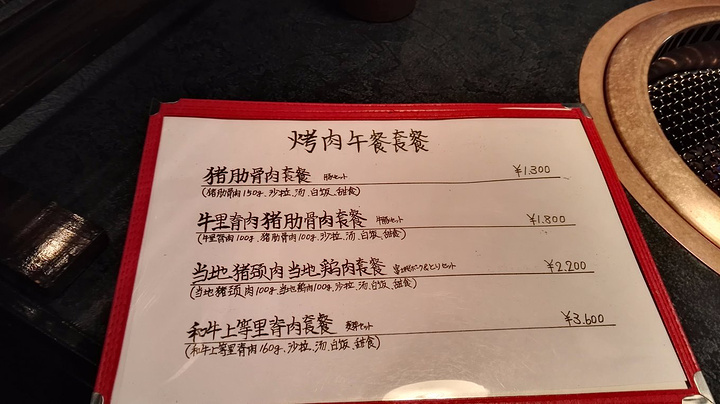 烤肉午餐套餐
猪肋骨肉套餐 豚セット ¥1.300
(猪肋骨肉150g、沙拉、汤、白饭、甜食)
牛里脊肉猪肋骨肉套餐 牛豚セット ¥1.800
(牛里脊肉100g、猪肋骨肉100g、沙拉、汤、白饭、甜食)
当地猪颈肉当地鸡肉套餐 ポーク&とりセット ¥2.200
(当地猪颈肉100g、当地鸡肉100g、沙拉、汤、白饭、甜食)
和牛上等里脊肉套餐 セット ¥3.600
(和牛上等里脊肉160g、沙拉、汤、白饭、甜食)